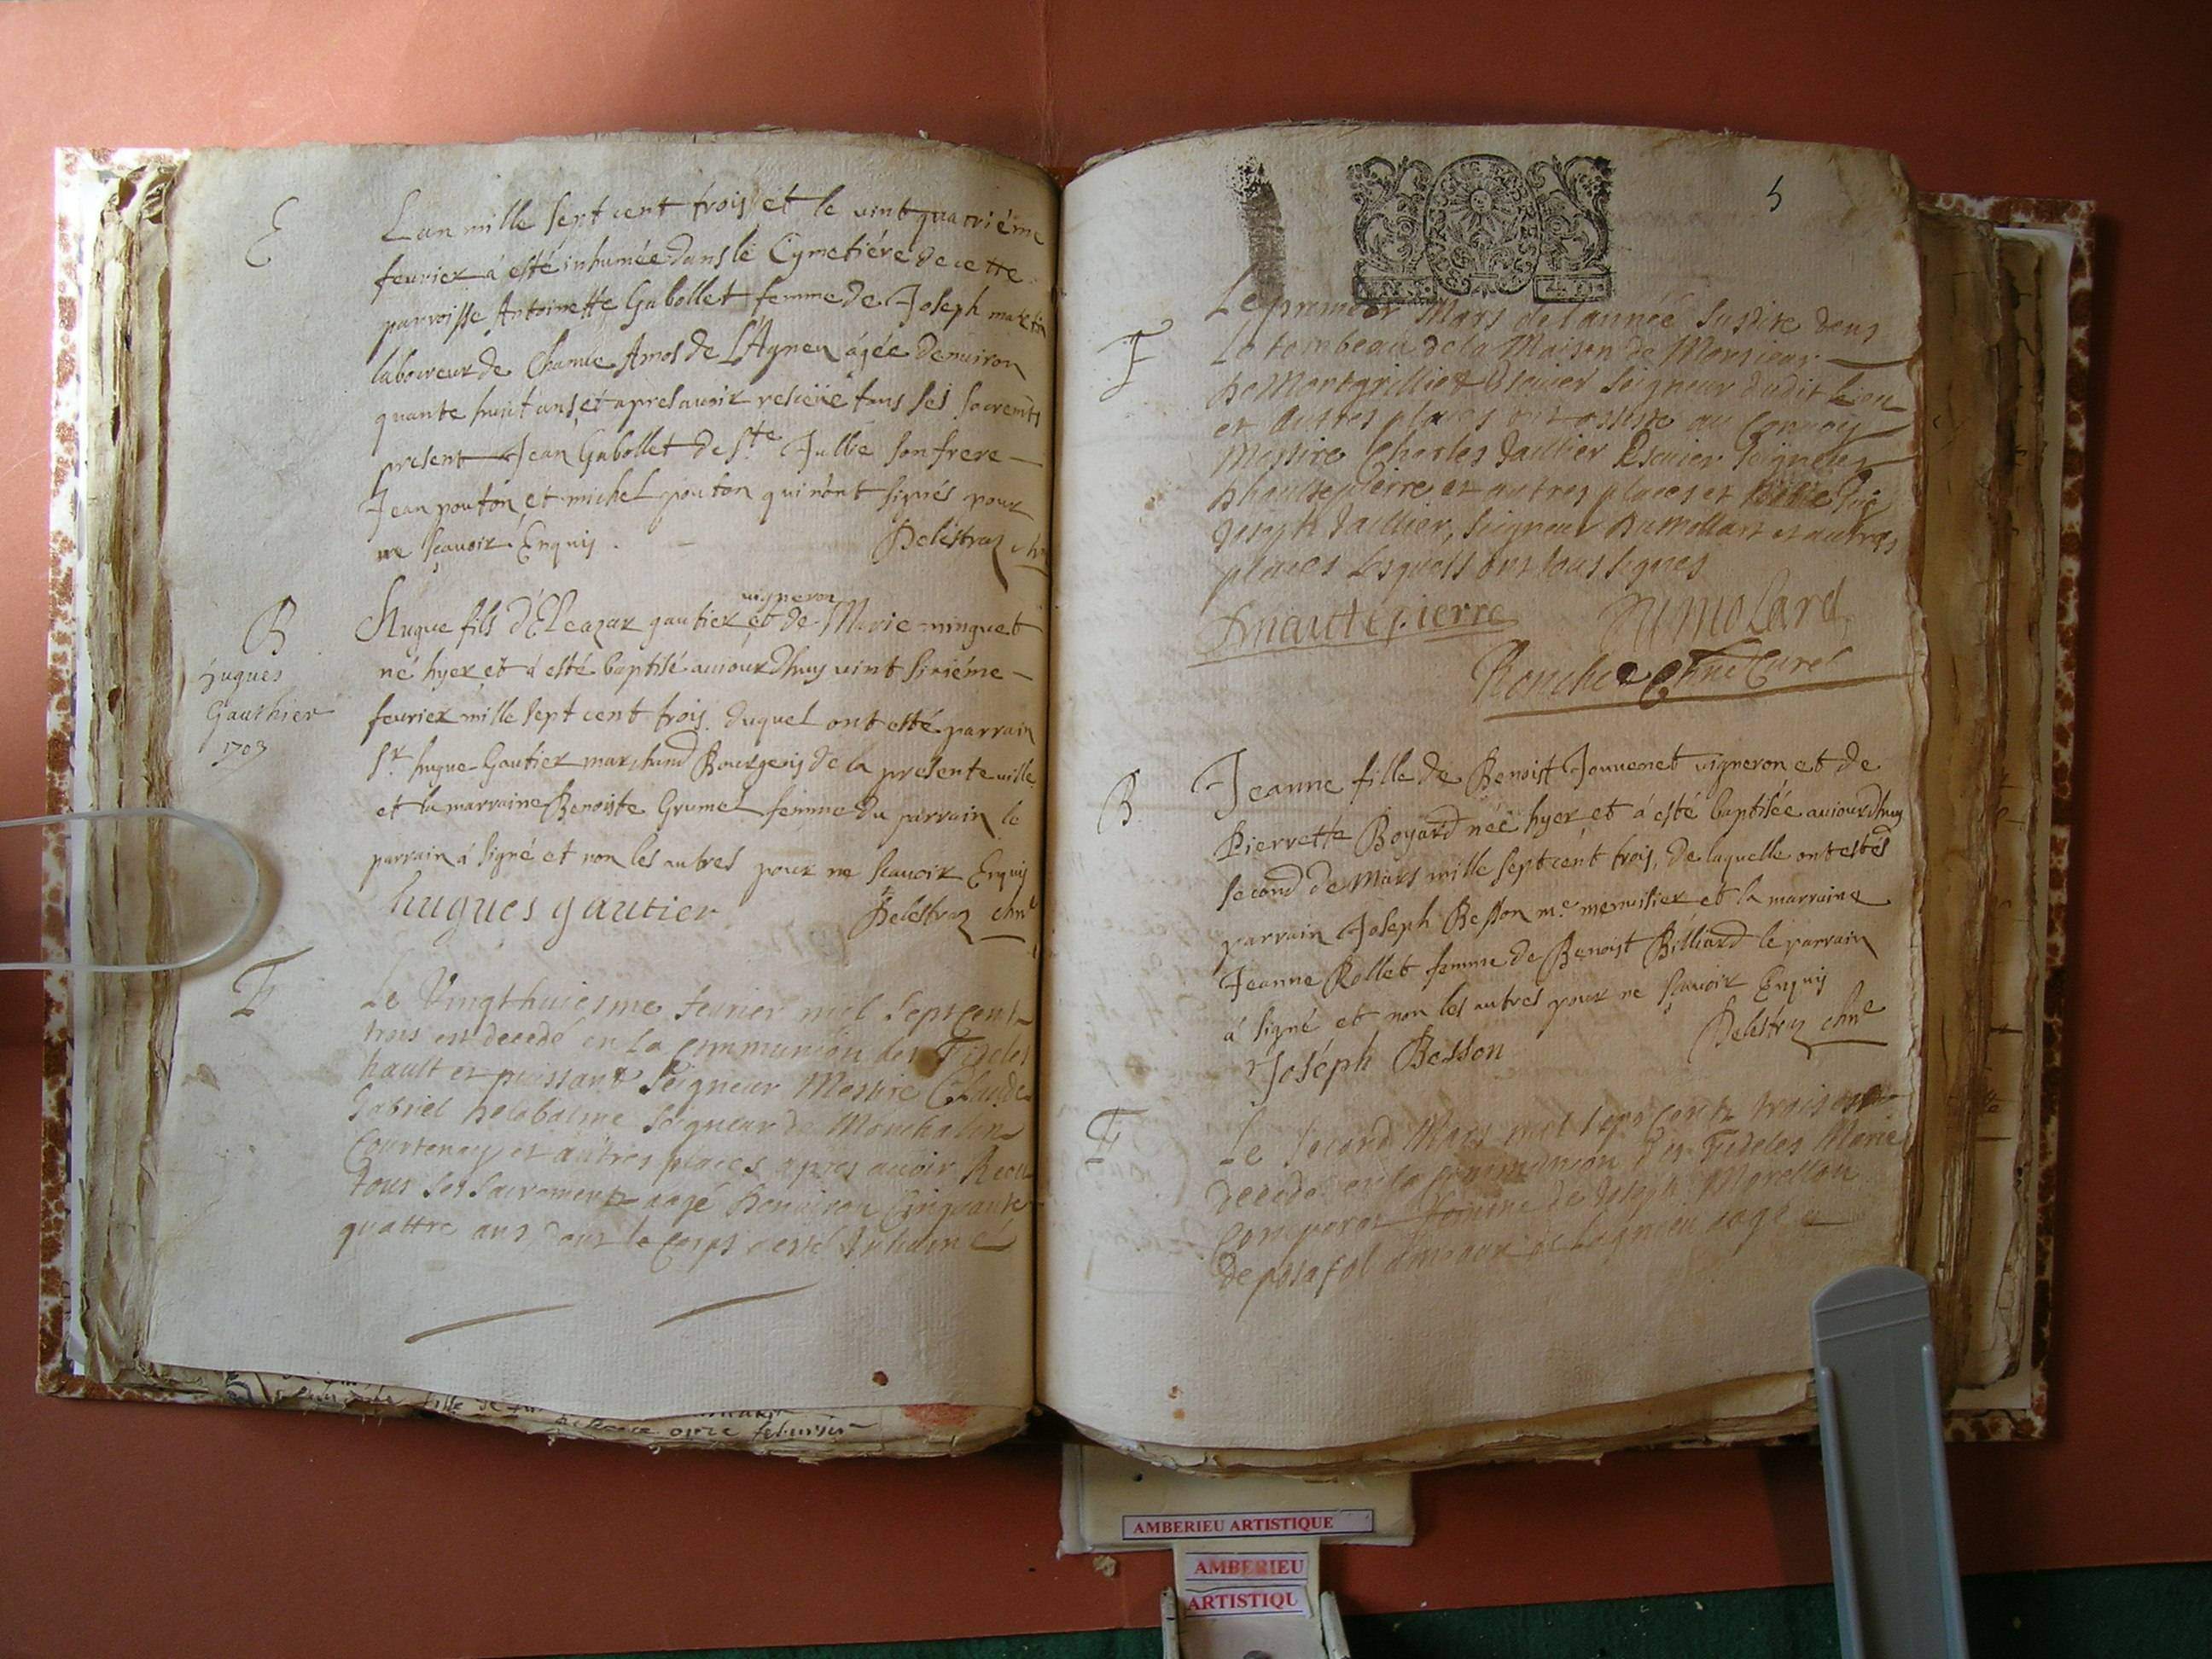 E
Lan mille sept cent trois et le vint quatriéme
feurier á esté inhumée dans le Cymetiére de cette
parroisse Antoinette Gabollet femme de Joseph martin
laboureur de Chanue Amos de L'Agneu ágée denuiron
quante huit ans et apres auoir resceüe tous ses sacremts
present Jean Gabollet de Ste Jullie son frere
Jean pouton et michel pouton qui n'ont signés pour
ne sçauoir Enquis. Delestraz chne
B
hugues
Gauthier
1703
vigneron
Hugue fils d'Eleazar gautier et de Marie minguet
né hyer et á esté baptisé auiourdhuy vint sixiéme
feurier mille sept cent trois duquel ont esté parrain
Sr hugue Gautier marchand Bourgeois de la presente ville
et la marraine Benoiste Grumel femme du parrain le
parrain á signé et non les autres pour ne scauoir Enquis
hugues gautier Delestraz chne
F
Le Vingthuiesme feurier mil Sept Cent
trois est decedé en la Communion des Fideles
hault et puissant Seigneur Messire Claude
Gabriel delabalme Seigneur de Montchalin
Courtenay et autres places apres auoir Receu
tous ses sacrements aagé denuiron Cinquante
quattre ans dont le Corps a esté Inhumé
5
Le premier Mars de l'année susdite dans
F
Le tombeau de la Maison de Monsieur
de Montgrillet Escuier Seigneur dudit lieu
et autres places ont assisté au Conuoy
Messire Charles Taillier Escuier Seigneur
d'haultepierre et autres places et
Joseph Taillier, Seigneur Dumollart et autres
places Lesquels ont tous signés
Dhautepierre Dumolard
chne Curé
B.
Jeanne fille de Benoist Jouuenet vigneron et de
Pierrette Boyard née hyer et á esté baptisée auiourdhuy
second de Mars mille sept cent trois, de laquelle ont estés
parrain Joseph Besson me menuisier et la marraine
Jeanne Rollet femme de Benoist Billiard le parrain
á signé et non les autres pour ne sçauoir Enquis
Joséph Besson Delestraz chne
F
Le second Mars mil sept Cents trois est
decedé en la Communion des Fideles Marie
Comparet femme de Joseph Morellon
de posafol amaux de Lagnieu aagé
AMBERIEU ARTISTIQUE
AMBERIEU
ARTISTIQU